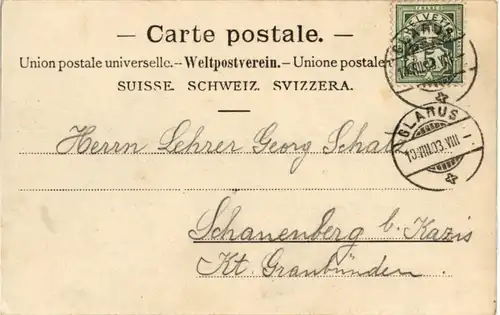 — Carte postale. —
Union postale universelle. — Weltpostverein. — Unione postale
SUISSE. SCHWEIZ. SVIZZERA.
HELVETIA
GLARUS
GLARUS
13.VIII.03.VIII
Herrn Lehrer Georg
Schauenberg b. Kazis
Kt. Graubünden.